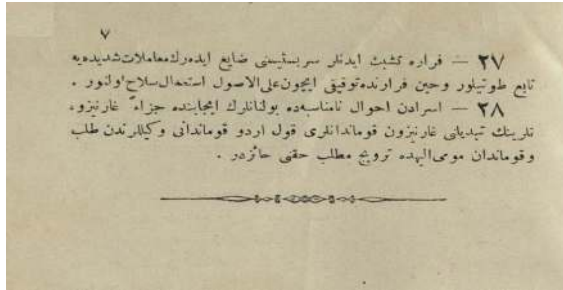 ٧
٢٧ — فراره تشبث ایدنلر سربستیسنی ضایع ایده‌رك معاملات شدیده‌یه
تابع طوتیلور وحین فرارنده توقیفی ایچون علی الاصول استعمال سلاح اولنور .
٢٨ — اسرادن احوال نامناسبه‌ده بولنانلرك ایجابنده جزاءً غارنیزو-
نلرینك تبدیلنی غارنیزون قوماندانلری قول اردو قوماندانی وكیللرندن طلب
وقوماندان مومی الیهده ترویج مطلب حقنی حائزدر .